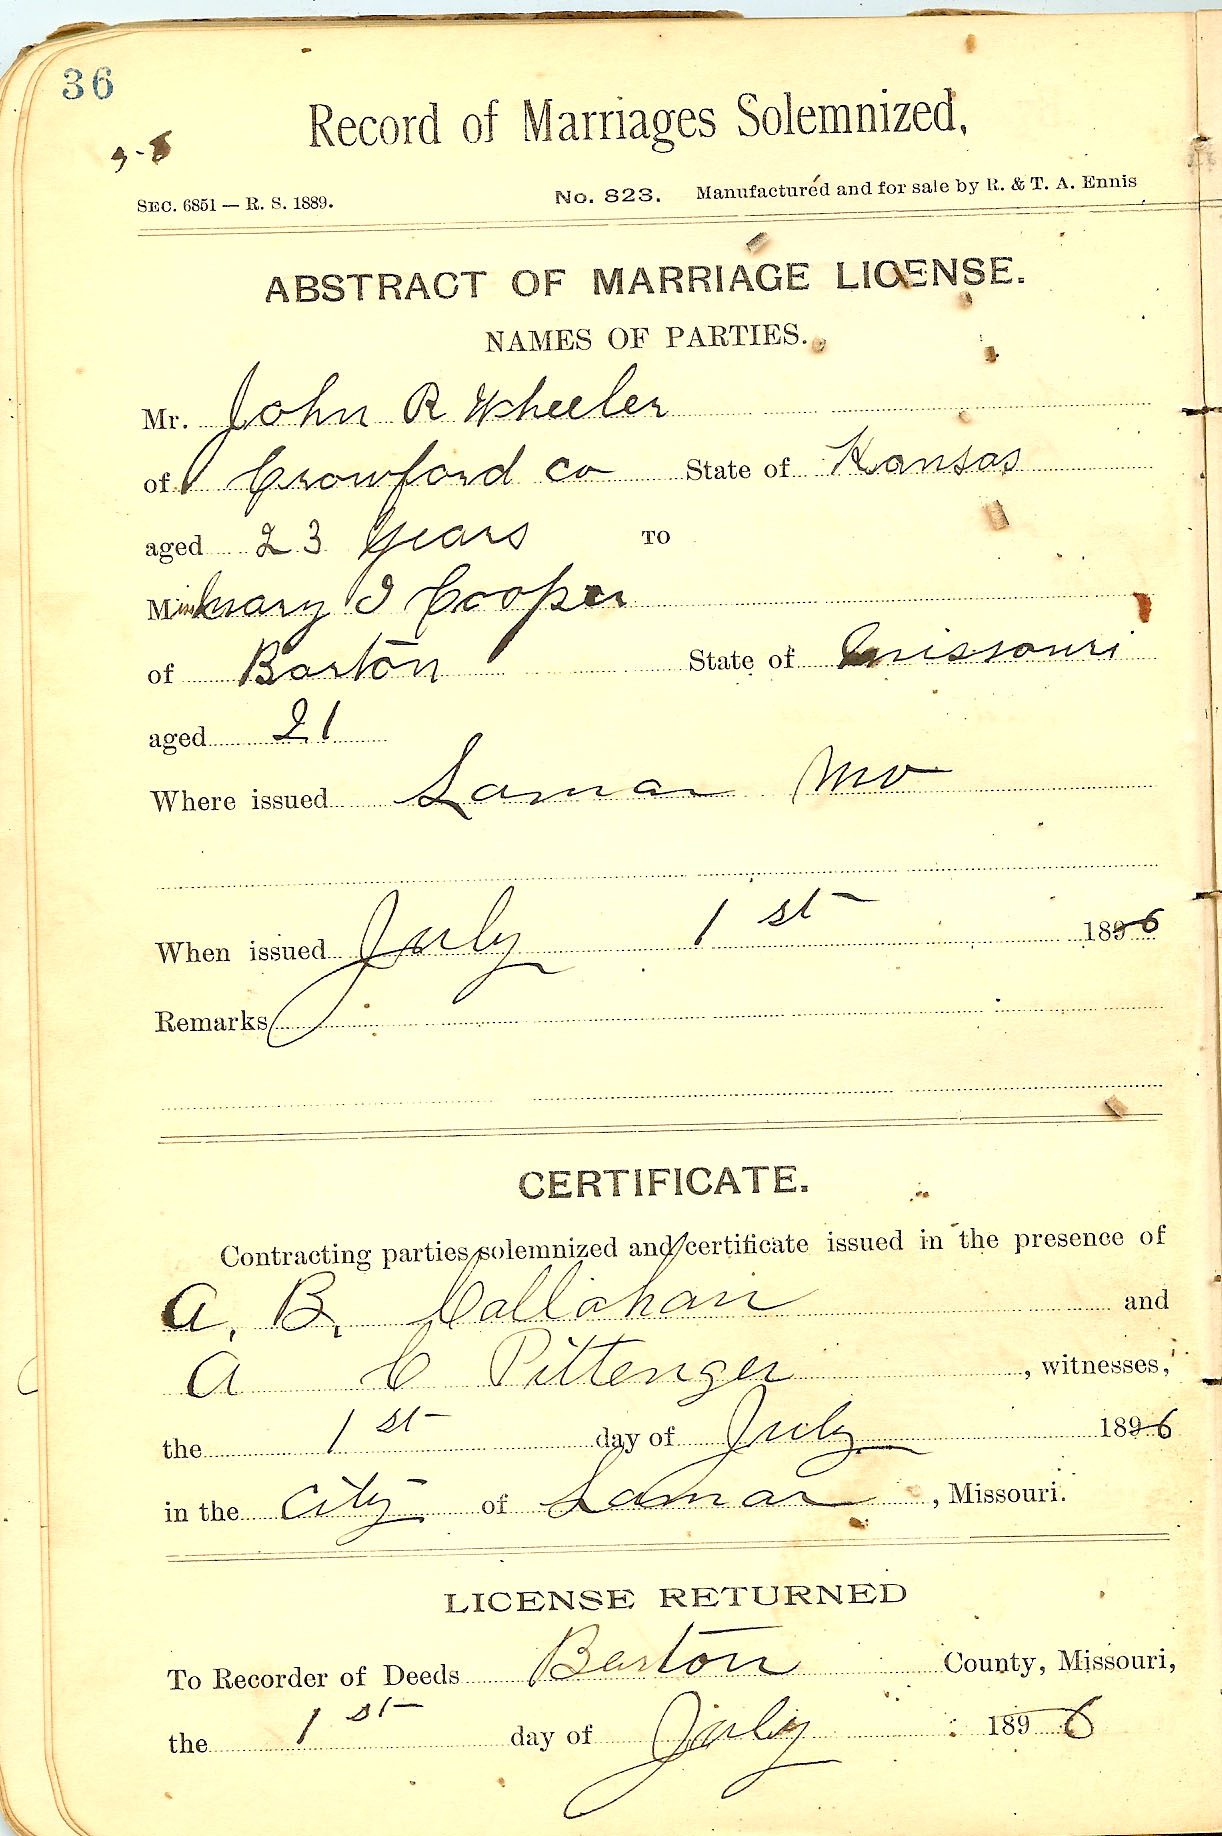 36
Record of Marriages Solemnized,
SEC. 6851 — R. S. 1889. No. 823. Manufactured and for sale by R. & T. A. Ennis
ABSTRACT OF MARRIAGE LICENSE.
NAMES OF PARTIES.
Mr. John R Wheeler
of Crowford co State of Kansas
aged 23 Years TO
Miss Mary I Cooper
of Barton State of Missouri
aged 21
Where issued Lamar Mo
When issued July 1st 1896
Remarks
CERTIFICATE.
Contracting parties solemnized and certificate issued in the presence of
A. B. Callahan and
A C Pittenger, witnesses,
the 1st day of July 1896
in the city of Lamar, Missouri.
LICENSE RETURNED
To Recorder of Deeds Barton County, Missouri,
the 1st day of July 1896